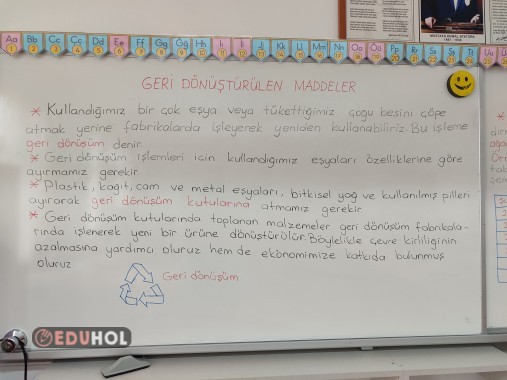 Aa Bb Cc Çç Dd Ee Ff Gg Ğğ Hh Iı İi Jj Kk Ll Mm Nn Oo Öö Pp Rr Ss Şş Tt Uu
GERİ DÖNÜŞTÜRÜLEN MADDELER
* Kullandığımız bir çok eşya veya tükettiğimiz çoğu besini çöpe
atmak yerine fabrikalarda işleyerek yeniden kullanabiliriz. Bu işleme
geri dönüşüm denir.
* Geri dönüşüm işlemleri için kullandığımız eşyaları özelliklerine göre
ayırmamız gerekir.
* Plastik, kağıt, cam ve metal eşyaları, bitkisel yağ ve kullanılmış pilleri
ayırarak geri dönüşüm kutularına atmamız gerekir.
* Geri dönüşüm kutularında toplanan malzemeler geri dönüşüm fabrikala-
rında işlenerek yeni bir ürüne dönüştürülür. Böylelikle çevre kirliliğinin
azalmasına yardımcı oluruz hem de ekonomimize katkıda bulunmuş
oluruz
Geri dönüşüm
EDUHOL